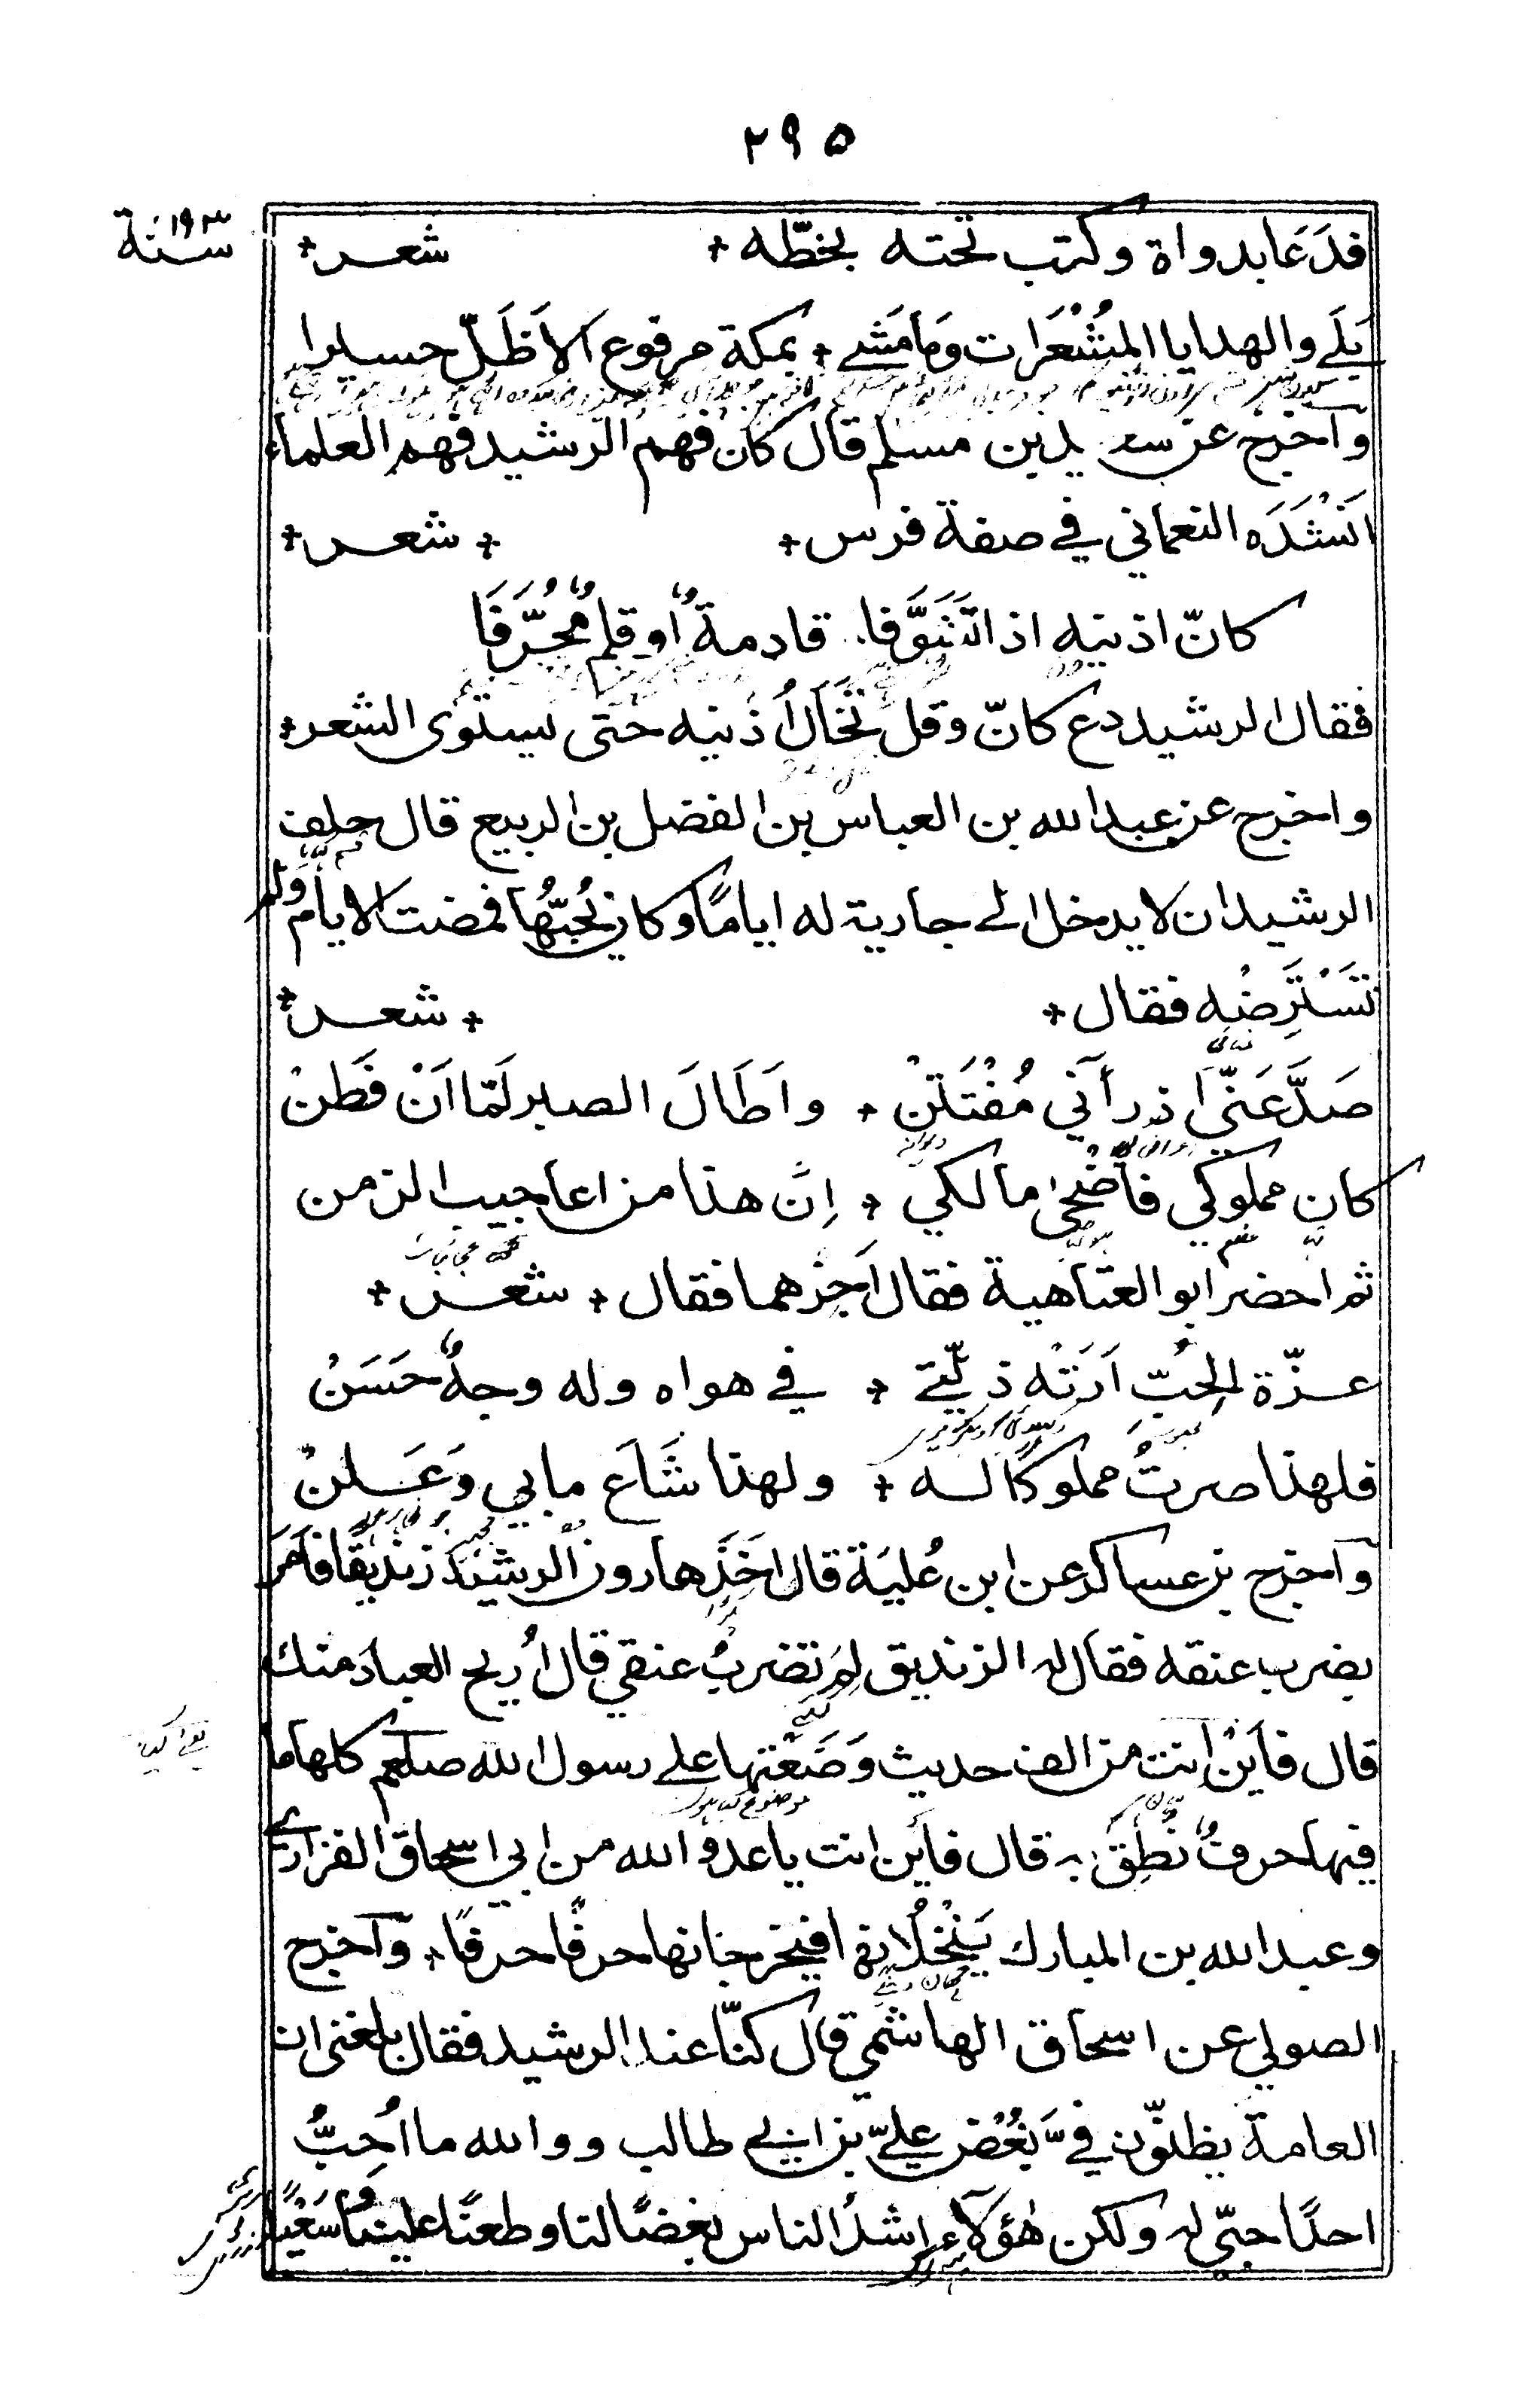 ۲۹۵
سنة ۱۹۳
فدَعَا بدواة وكتب تحته بخطّه + شعر +
بَلَے والهدايا المُشْعَرات وَمَا مَشَے + بمكة مرفوع الاَظَلّ حسيرا
وآخرج عن سعيد بن مسلم قال كان فهم الرشيد فهم العلماء
اَنْشَدَه النعماني في صفة فرس + + شعر +
كانّ اذنيه اذا تَشَوَّفا قادمةً أو قلمًا مُحَرَّفَا
فقال الرشيد دع كانّ وقل تَخَالُ أذنيه حتى يستوى الشعر +
واخرج عن عبد الله بن العباس بن الفضل بن الربيع قال حلف
الرشيد ان لا يدخل الے جارية له اياماً وكان يُحبُّها فمضت الايام ولم
تَسْتَرِضْه فقال + + شعر +
صَدَّ عَنّي اذ رأني مُفْتَتَنْ + واَطَالَ الصبر لَمّا اَنْ فَطَنْ
كان مملوكي فاَضْحٰى مالكي + اِنَّ هذا من اعاجيب الزمن
ثم احضر ابو العتاهية فقال اَجِزْهما فقال + شعر +
عزّة الحُبّ اَرَتْه ذلّتے + في هواه وله وجهٌ حَسَنْ
فلهذا صرتُ مملوكًا له + ولهذا شَاَعَ مابي وَعَلَنْ
وآخرج بن عساكر عن ابن عُليَة قال اخَذَ هارون الرشيد زنديقًا فاَمَرَ
بضرب عنقه فقال له الزنديق لِمَ تضربُ عنقي قال أريح العبادَ منك
قال فاَيْنَ انت من الف حديث وَضَعْتها علے رسول الله صلعم كلها ما
فيها حرفٌ نُطِقَ به قال فاَين انت يا عدوّ الله من ابي اسحاق الفزاري
وعبد الله بن المبارك يَنْخُلانها فيخرجانها حرفًا حرفًا + وآخرج
الصولي عن اسحاق الهاشمي قال كنّا عند الرشيد فقال بلغني ان
العامة يظنّون فيَّ بُغْض عليّ بن ابي طالب ووالله ما أُحِبُّ
احدًا حبّي له ولكن هٰؤلآء اشدُّ الناس بغضًا لنا وطعنًا علينا وسَعْيًا